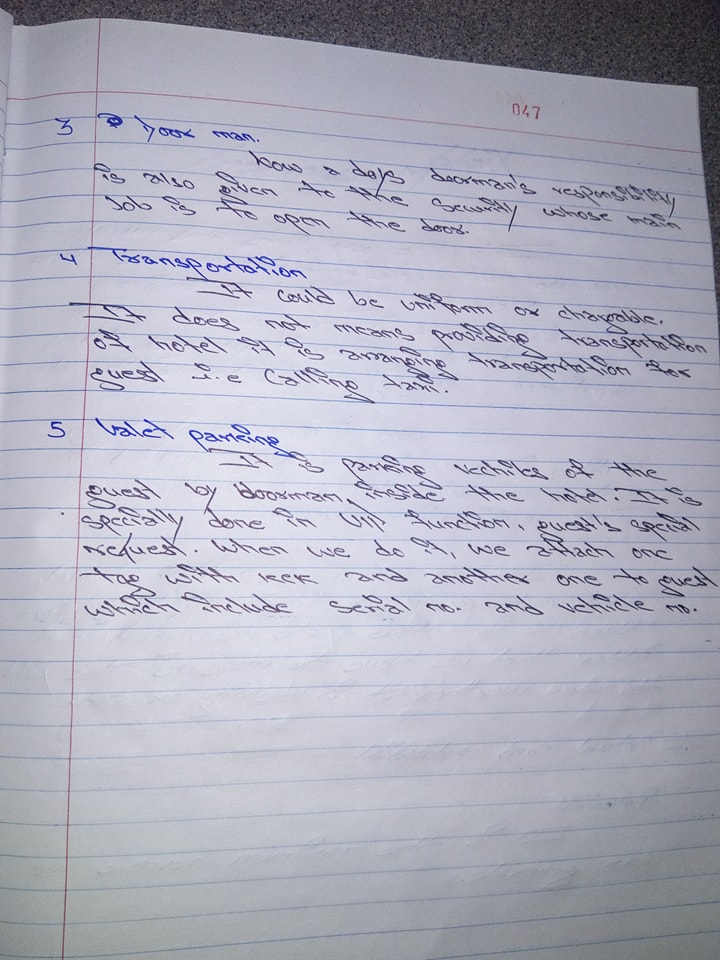 047
3 Door man.
Now a days doorman's responsibility
is also given to the security whose main
Job is to open the door.
4 Transportation
It could be uniform or chargable.
It does not means providing transportation
of hotel it is arranging transportation for
guest i.e calling taxi.
5 Valet parking
It is parking vechiles of the
guest by doorman, inside the hotel. It is
specially done in function, guest's special
request. When we do it, we attach one
tag with and another one to guest
which include serial no. and vehicle no.